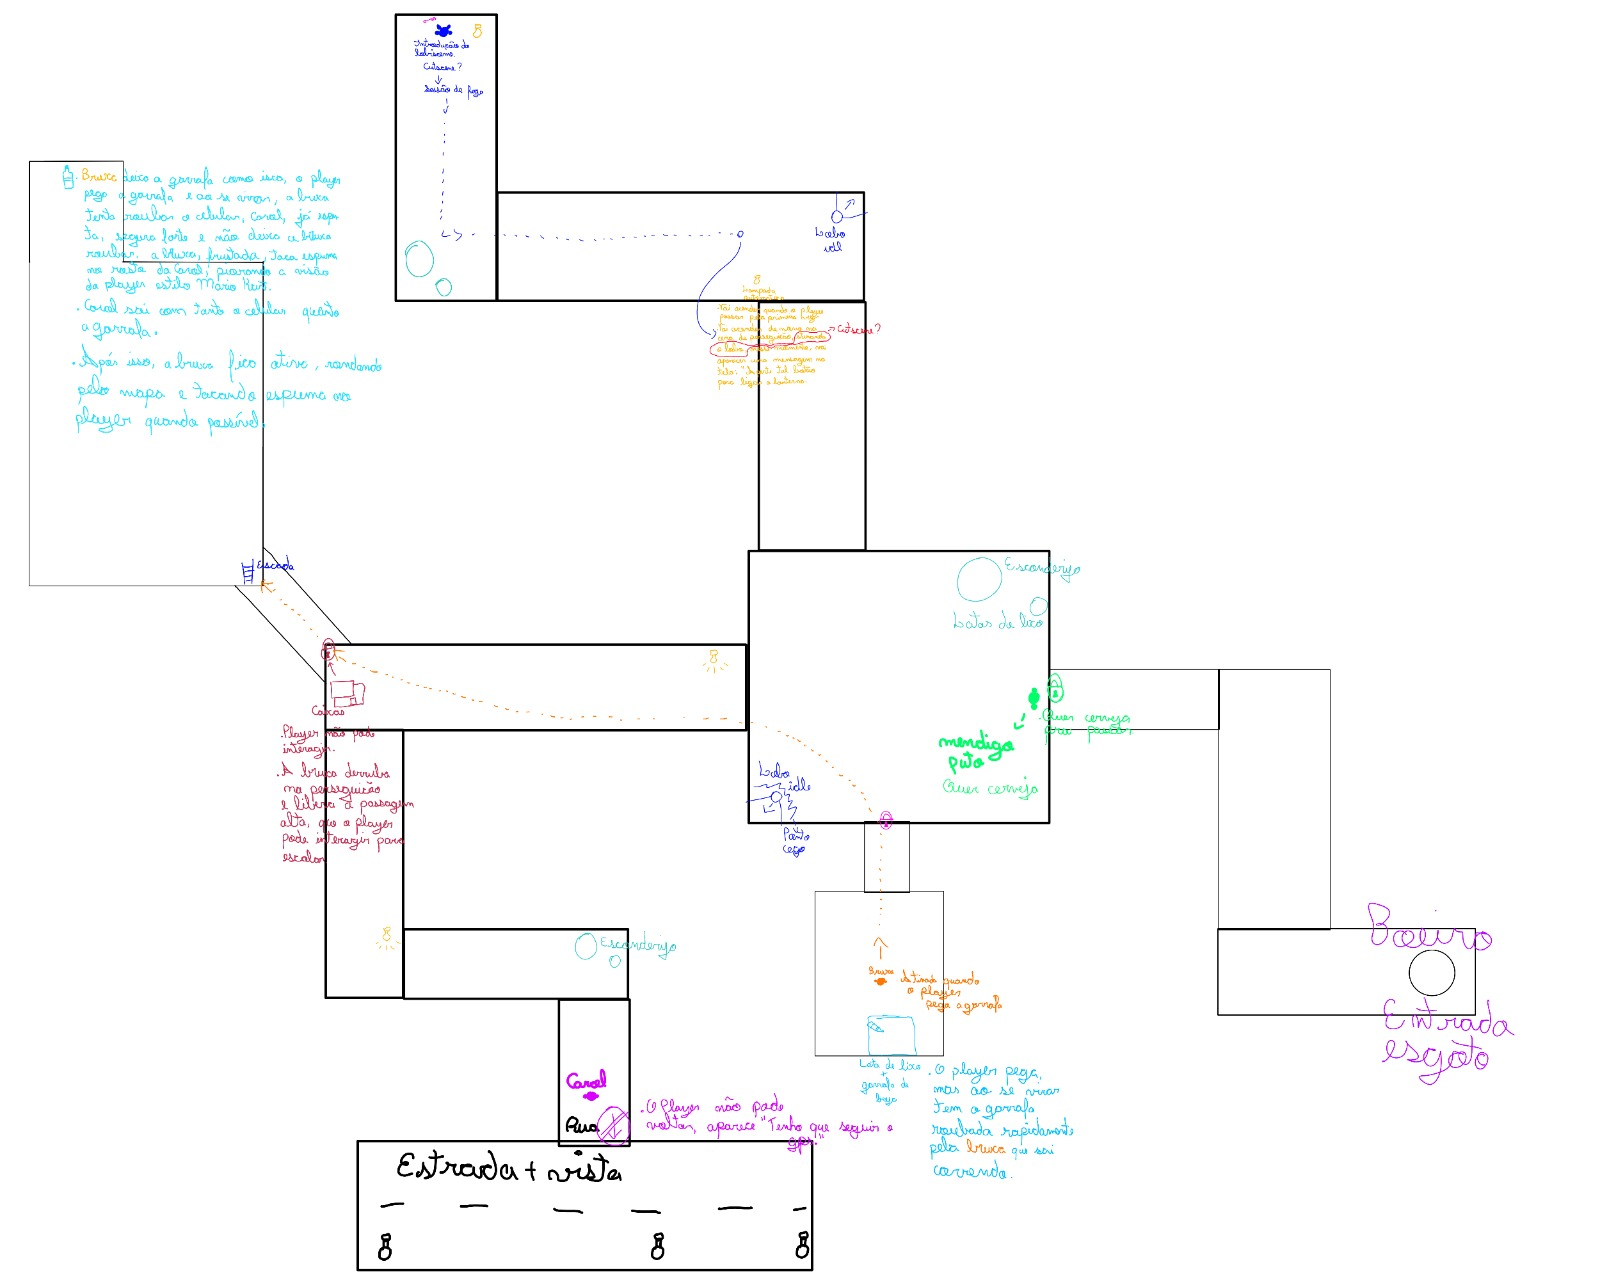 Introdução do
lobisomem.
Cutscene?
Sessão de fogo
Bruxa deixa a garrafa como isca, o player
pega a garrafa e ao se virar, a bruxa
tenta roubar o celular, Carol, já
segura forte e não deixa a bruxa
roubar. a bruxa, frustada, taca espuma
no rosto da Carol, piorando a visão
do player estilo Mario Kart.
. Carol sai com tanto o celular quanto
a garrafa.
. Após isso, a bruxa fica ativa, rondando
pelo mapa e tacando espuma no
player quando possível.
Lobo
idl
Lampada
. Vai acender quando o player
passar pela primeira vez
→ Cutscene?
o lobo
aparecer uma mensagem na
tela: "Aperte tal botão
para ligar a lanterna.
Escada
Esconderijo
Latas de lixo
Caixas
. Player não pode
interagir.
. A bruxa derruba
na perseguição
e libera a passagem
alta, que o player
pode interagir para
escalar
mendigo
puto
Quer cerveja
. Quer cerveja
pra passar
Lobo
idle
Ponto
cego
Esconderijo
Bruxa
Ativada quando
o player
pega a garrafa
Lata de lixo
+
garrafa de
breja
. O player pega,
mas ao se virar
tem a garrafa
roubada rapidamente
pela bruxa que sai
correndo.
Bairro
Entrada
esgoto
Carol
Rua
. O Player não pode
voltar, aparece "Tenho que seguir o
gps."
Estrada + vista